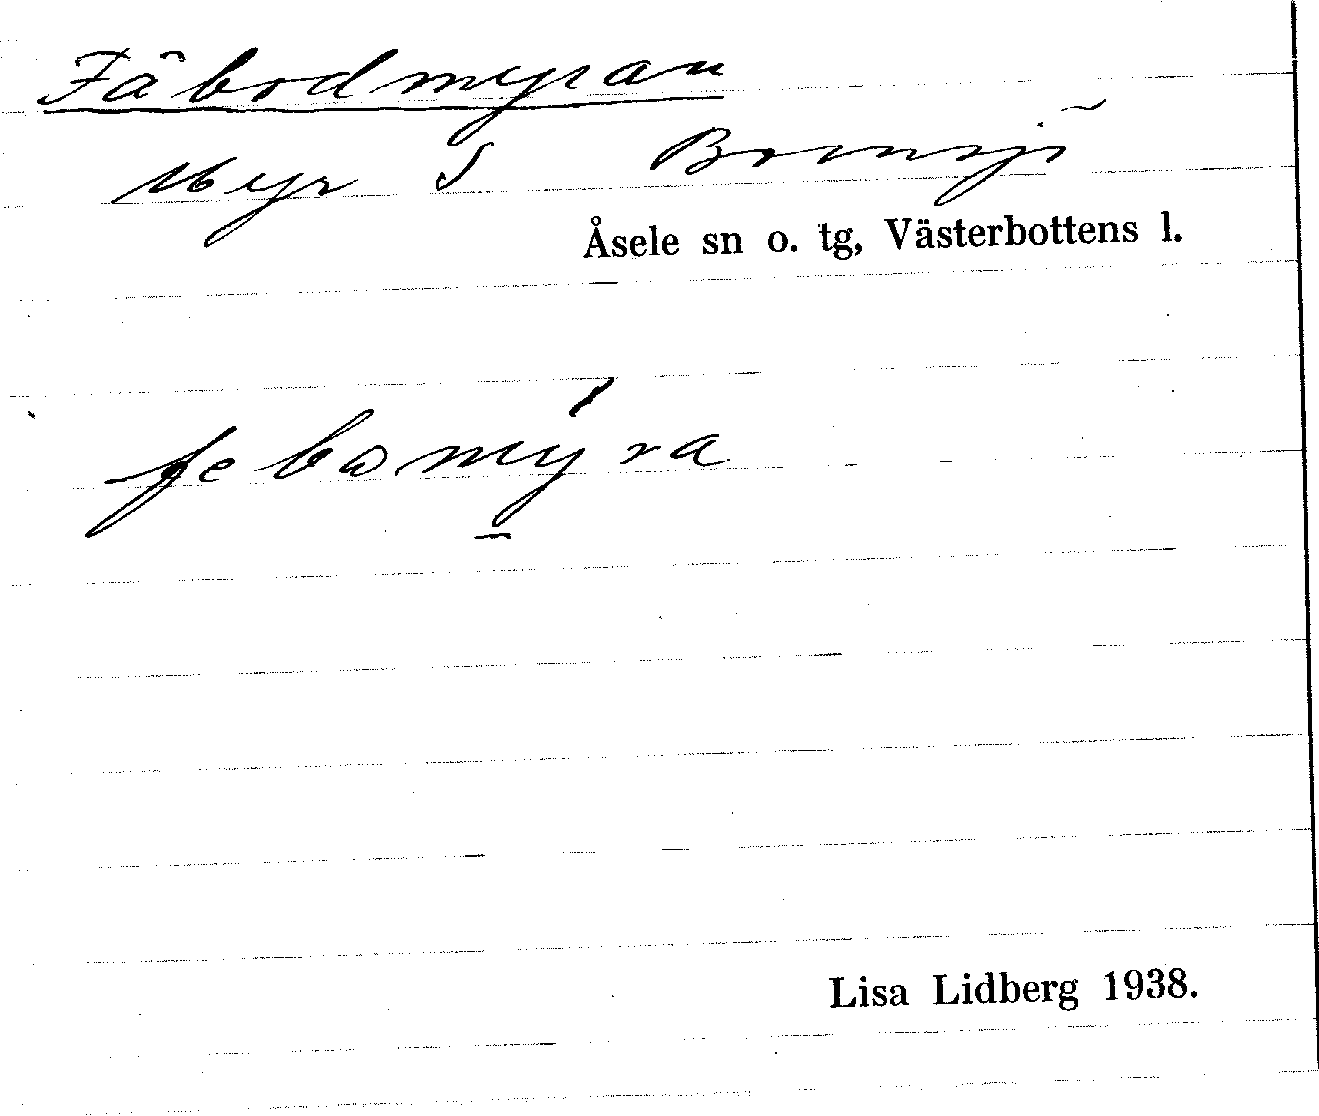 Fäbodmyran
Myr S Bomsjö
Åsele sn o. tg, Västerbottens l.
febomyra
Lisa Lidberg 1938.